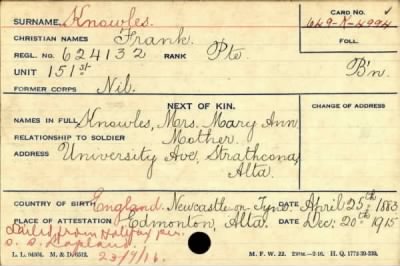 SURNAME Knowles. CARD NO. 649-K-4994
CHRISTIAN NAMES Frank. FOLL.
REGL. NO. 624132 RANK Pte
UNIT 151st B'n.
FORMER CORPS Nil.
NEXT OF KIN. CHANGE OF ADDRESS
NAMES IN FULL Knowles, Mrs. Mary Ann
RELATIONSHIP TO SOLDIER Mother.
ADDRESS University Ave, Strathcona,
Alta.
COUNTRY OF BIRTH England. Newcastle on Tyne. DATE April 25th 1883
PLACE OF ATTESTATION Edmonton, Alta. DATE Dec: 20th 1915
Sailed from Halifax per
S. S.
L. L. M. & D. M. F. W. 22. H. Q. 1772-39-339.